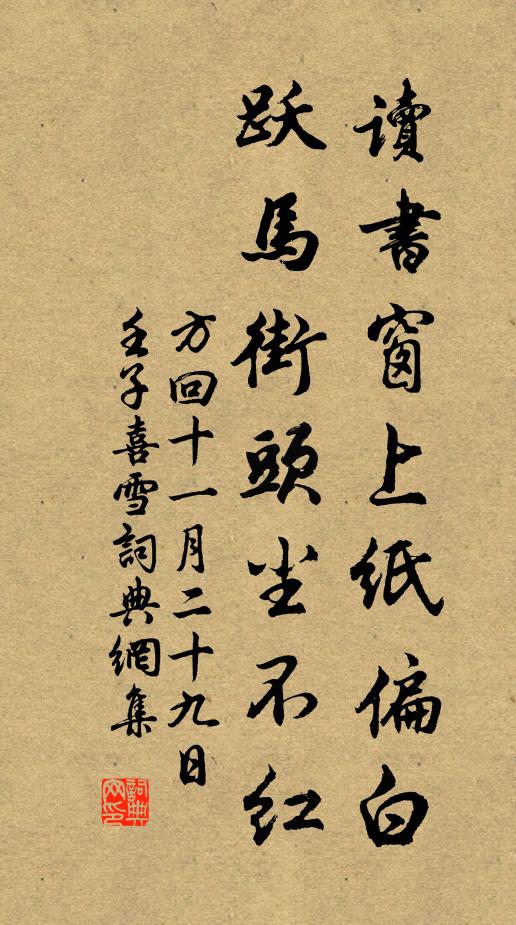 讀書窗上紙偏白
跃馬街頭尘不红
方回十一月二十九日
壬子喜雪詞典網集
詞典网印